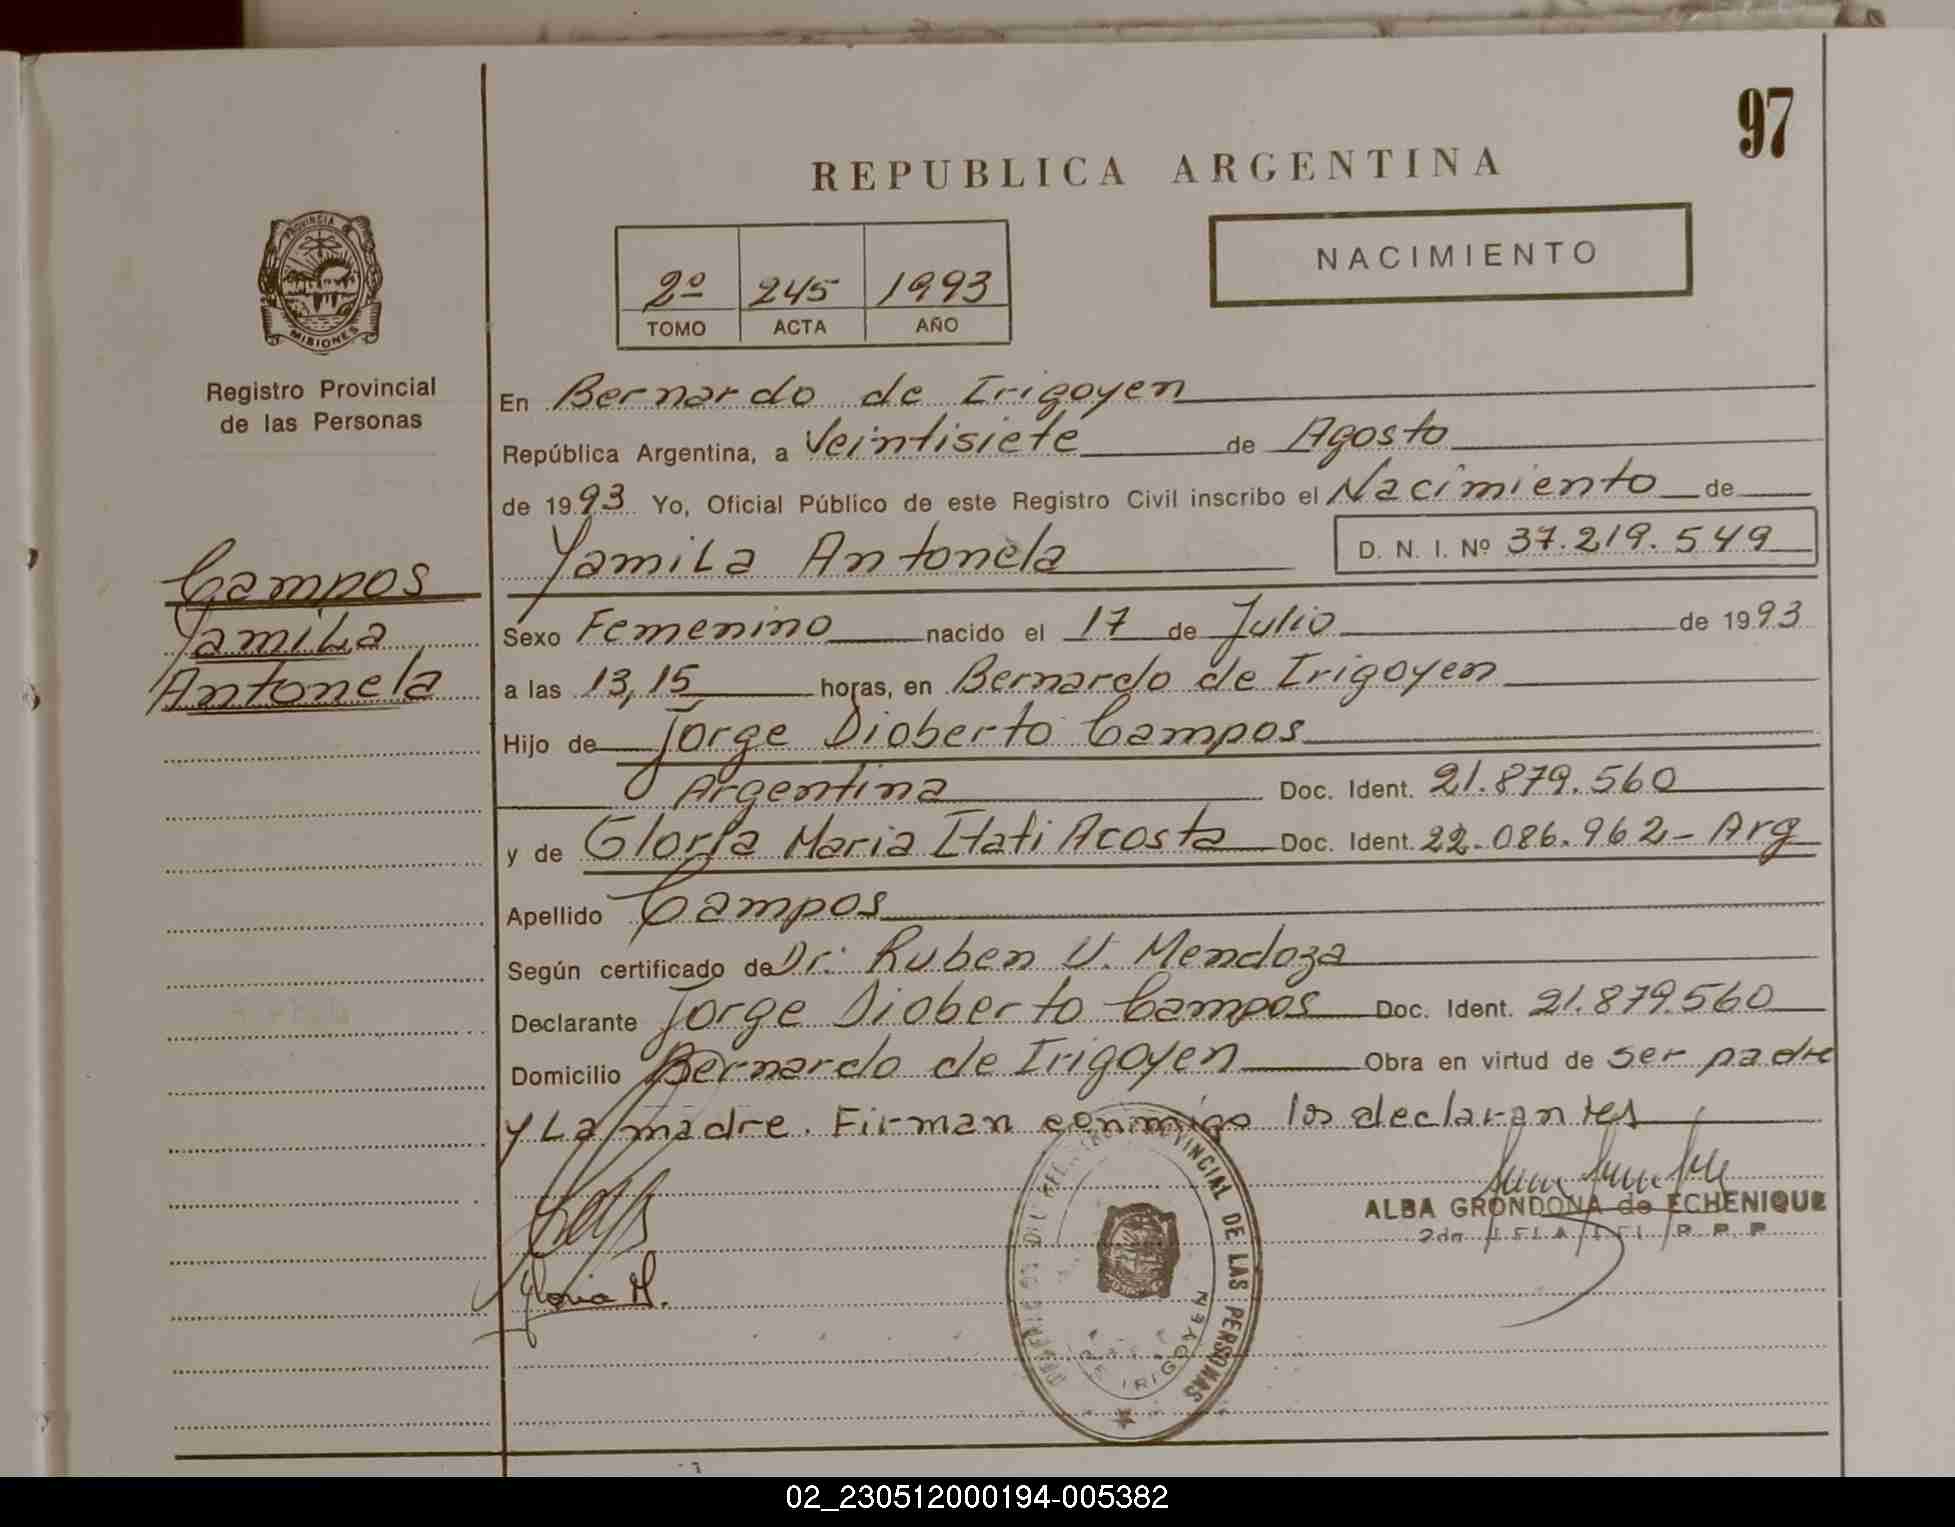 97
REPUBLICA ARGENTINA
NACIMIENTO
2º 245 1993
TOMO ACTA AÑO
PROVINCIA
MISIONES
Registro Provincial
de las Personas
Campos
Yamila
Antonela
En Bernardo de Irigoyen
República Argentina, a Veintisiete de Agosto
de 1993 Yo, Oficial Público de este Registro Civil inscribo el Nacimiento de
Yamila Antonela D. N. I. Nº 37.219.549
Sexo Femenino nacido el 17 de Julio de 1993
a las 13,15 horas, en Bernardo de Irigoyen
Hijo de Jorge Dioberto Campos
Argentina Doc. Ident. 21.879.560
y de Gloria Maria Itati Acosta Doc. Ident. 22.086.962 - Arg
Apellido Campos
Según certificado de Dr. Ruben V. Mendoza
Declarante Jorge Dioberto Campos Doc. Ident. 21.879.560
Domicilio Bernardo de Irigoyen Obra en virtud de ser padre
y La madre. Firman conmigo los declarantes
ALBA GRONDONA de ECHENIQUE
Gloria M.
PROVINCIAL DE LAS PERSONAS
DE IRIGOYEN
02_230512000194-005382